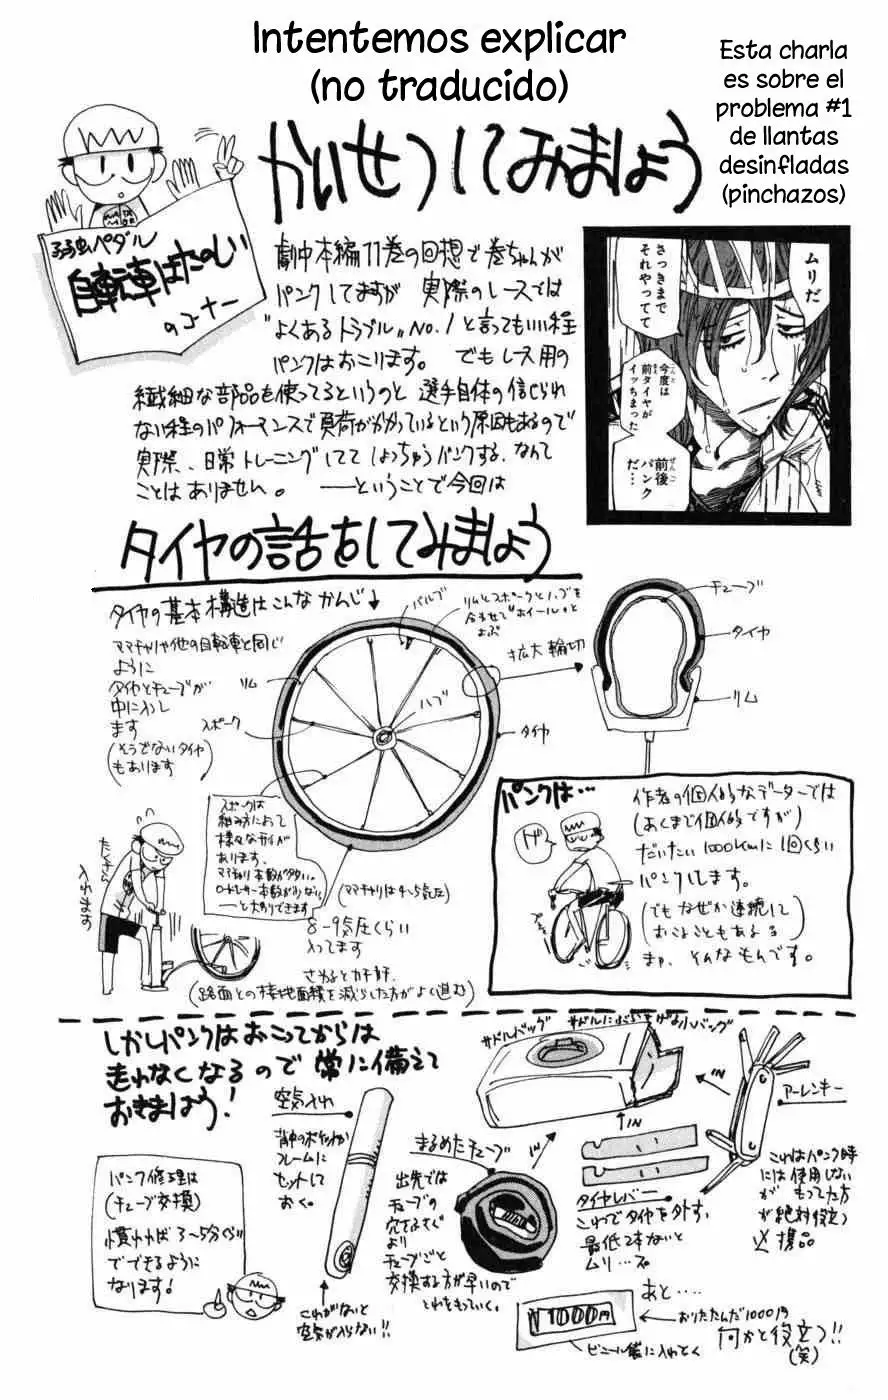 Intentemos explicar
(no traducido)
Esta charla
es sobre el
problema #1
de llantas
desinfladas
(pinchazos)
かいせつしてみましょう
弱虫ペダル
自転車はたのしい
のコーナー
劇中本編11巻の回想で巻ちゃんが
パンクしてますが 実際のレースでは
"よくあるトラブル"NO.1と言ってもいい程
パンクはおこります。 でもレース用の
繊細な部品を使ってるというのと 選手自体の信じられ
ない程のパフォーマンスで負荷がかかっているという原因もあるので
実際、日常トレーニングしてて しょっちゅうパンクする、なんて
ことはありません。 ――ということで今回は
ムリだ
さっきまで
それやってて
今度は
前タイヤが
イッちまった
前後
パンク
だ…
タイヤの話をしてみましょう
タイヤの基本構造はこんなかんじ↓
ママチャリや他の自転車と同じ
ように
タイヤとチューブが
中に入っし
ます
(そうでないタイヤ
もあります)
リム
スポーク
バルブ
リムとスポークとハブを
合わせて"ホイール"と
よぶ
ハブ
タイヤ
拡大 輪切
チューブ
タイヤ
リム
スポークは
組み方によって
様々なサイズが
あります。
ママチャリ本数が多い。
ロードレーサー本数が少ない。
――と大別できます
(ママチャリは4~5気圧)
8-9気圧くらい
入ってます
さわるとカチカチ。
(路面との接地面積を減らした方がよく進む)
入れます
パンクは…
ゲ
作者の個人的なデーターでは
(あくまで個人的ですが)
だいたい1000kmに1回くらい
パンクします。
(でもなぜか連続して
おこることもあるる
まぁ、そんなもんです。
しかしパンクはおこってからは
走れなくなるので 常に備えて
おきましょう!
パンク修理は
(チューブ交換)
慣れれば3~5分くらい
でできるように
なります!
空気入れ
背中のポケットか
フレームに
セットして
おく。
これがないと
空気が入らない!!
まるめたチューブ
出先では
チューブの
穴をふさぐ
より
チューブごと
交換する方が早いので
これをもっていく。
サドルバッグ
サドルにぶらさげる小バッグ
IN
IN
IN
タイヤレバー
これでタイヤを外す。
最低2本ないと
ムリ…プ。
アーレンキー
これはパンク時
には使用しない
が もってた方
が絶対役立つ
必携品
あと…
¥1000円
おりたたんだ1000円
何かと役立つ!!
(笑)
ビニール袋に入れとく